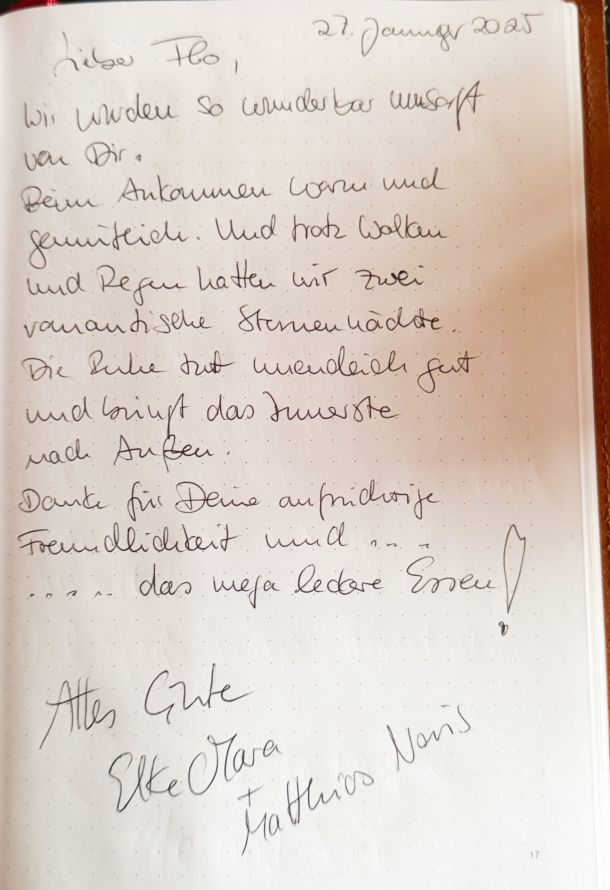 27. Januar 2025
Lieber Flo,
Wir wurden so wunderbar umsorgt
von Dir.
Beim Ankommen warm und
gemütlich. Und trotz Wolken
und Regen hatten wir zwei
romantische Sternennächte.
Die Ruhe tut unendlich gut
und bringt das Innerste
nach Außen.
Danke für Deine aufrichtige
Freundlichkeit und ....
..... das mega leckere Essen!
Alles Gute
Elke Mara
+ Matthias Novis
17